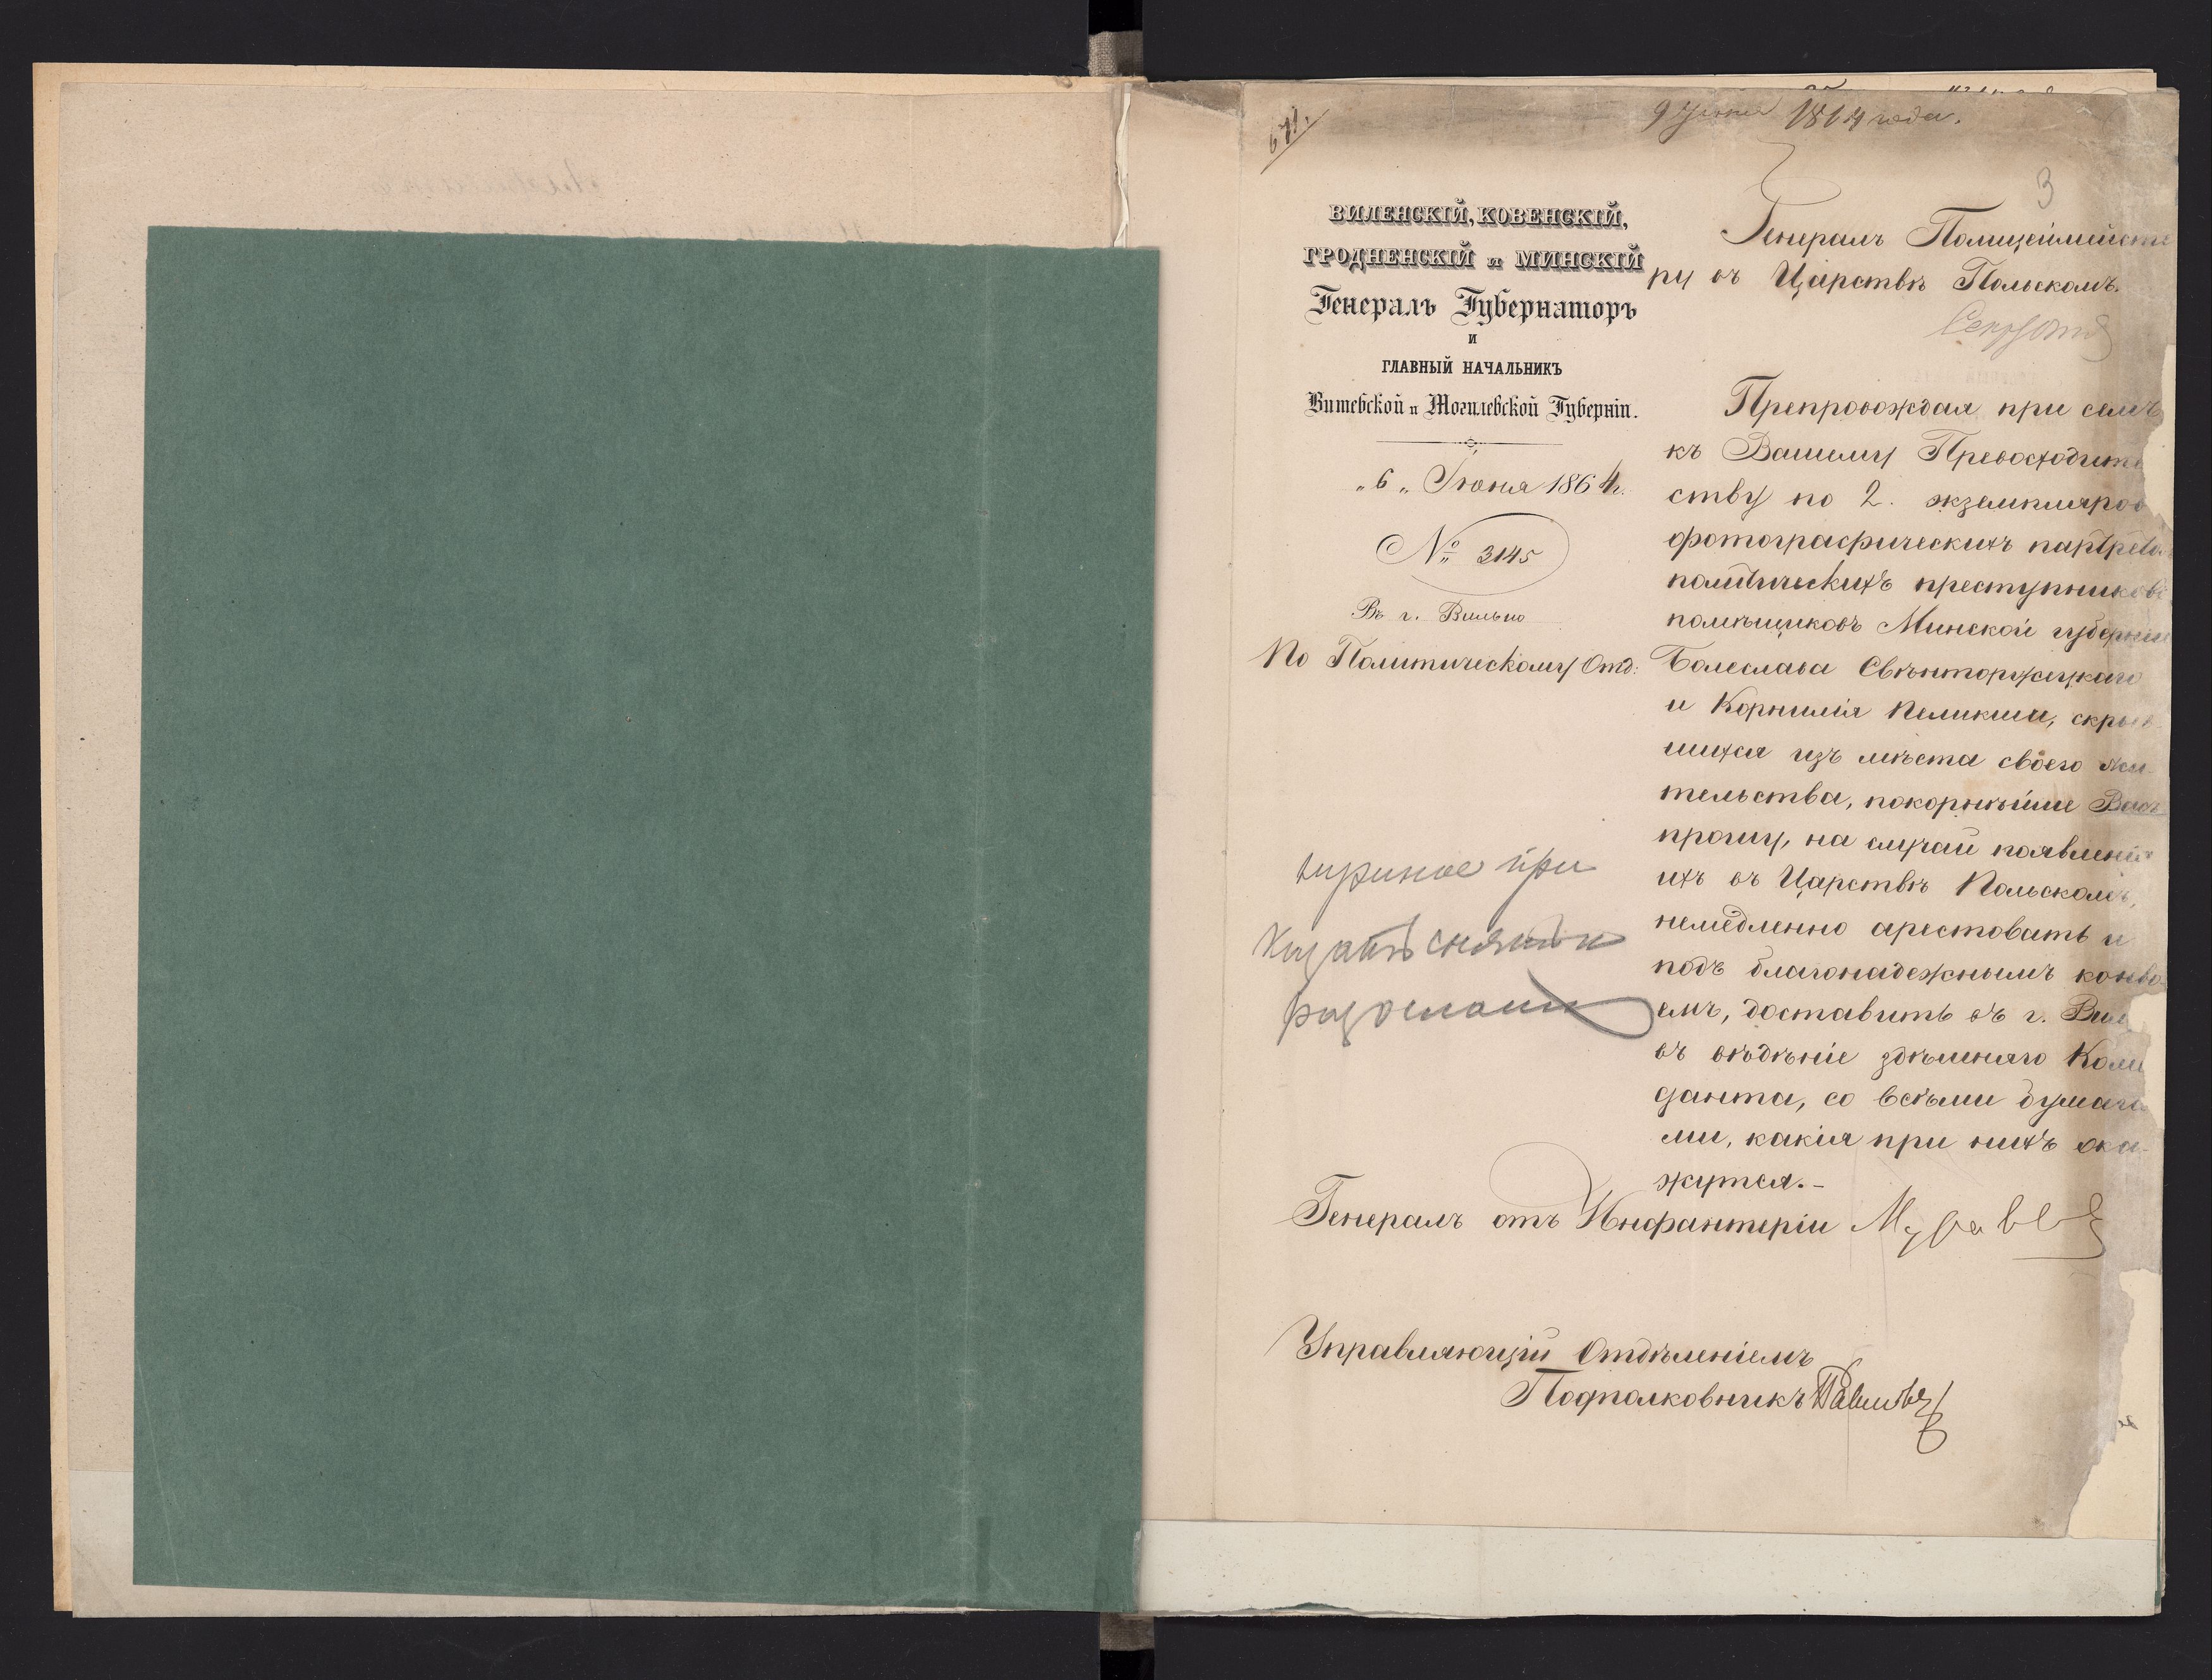 671.
9 Іюня 1864 года.
3
ВИЛЕНСКІЙ, КОВЕНСКІЙ,
ГРОДНЕНСКІЙ и МИНСКІЙ
Генералъ Губернаторъ
И
ГЛАВНЫЙ НАЧАЛЬНИКЪ
Витебской и Могилевской Губерніи.
„6„ Іюня 1864 г.
№ 3145
Въ г. Вильно
По Политическому Отд:
Генералъ Полицеймейсте
ру въ Царствѣ Польскомъ.
Препровождая при семъ
къ Вашему Превосходите
ству по 2. экземпляров
фотографическихъ партрето
политическихъ преступниковъ
помѣщиковъ Минской губерніи
Болеслава Свѣнторжецкаго
и Корнилія Пеликша, скрыв-
шихся изъ мѣста своего жи-
тельства, покорнѣйше Васъ
прошу, на случай появленія
ихъ въ Царствѣ Польскомъ,
немедленно арестовать и
подъ благонадежнымъ конво-
емъ, доставить въ г. Вил
въ вѣдѣніе здѣшняго Ком
данта, со всѣми бумага
ми, какія при нихъ ока-
жутся.-
Генералъ отъ Инфантеріи Муравьев
Управляющій Отдѣленіемъ
Подполковникъ Павловъ